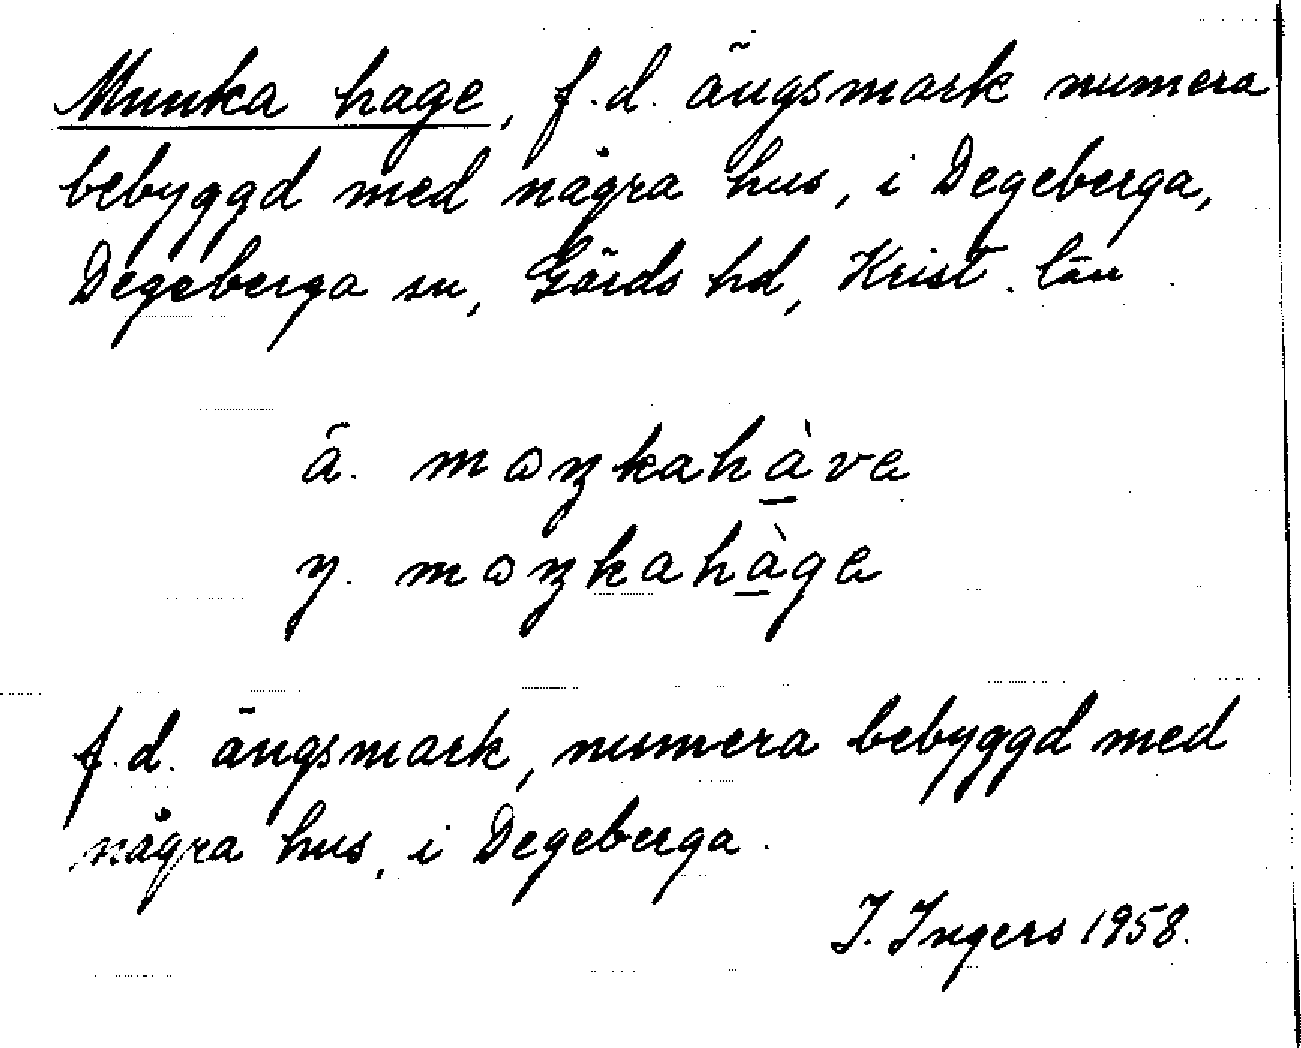 Munka hage, f.d. ängsmark numera
bebyggd med några hus, i Degeberga,
Degeberga sn, Gärds hd, Krist. län.
ä. mɷŋkahà̱va
y. mɷŋkahà̱ga
f.d. ängsmark, numera bebyggd med
några hus, i Degeberga.
I. Ingers 1958.